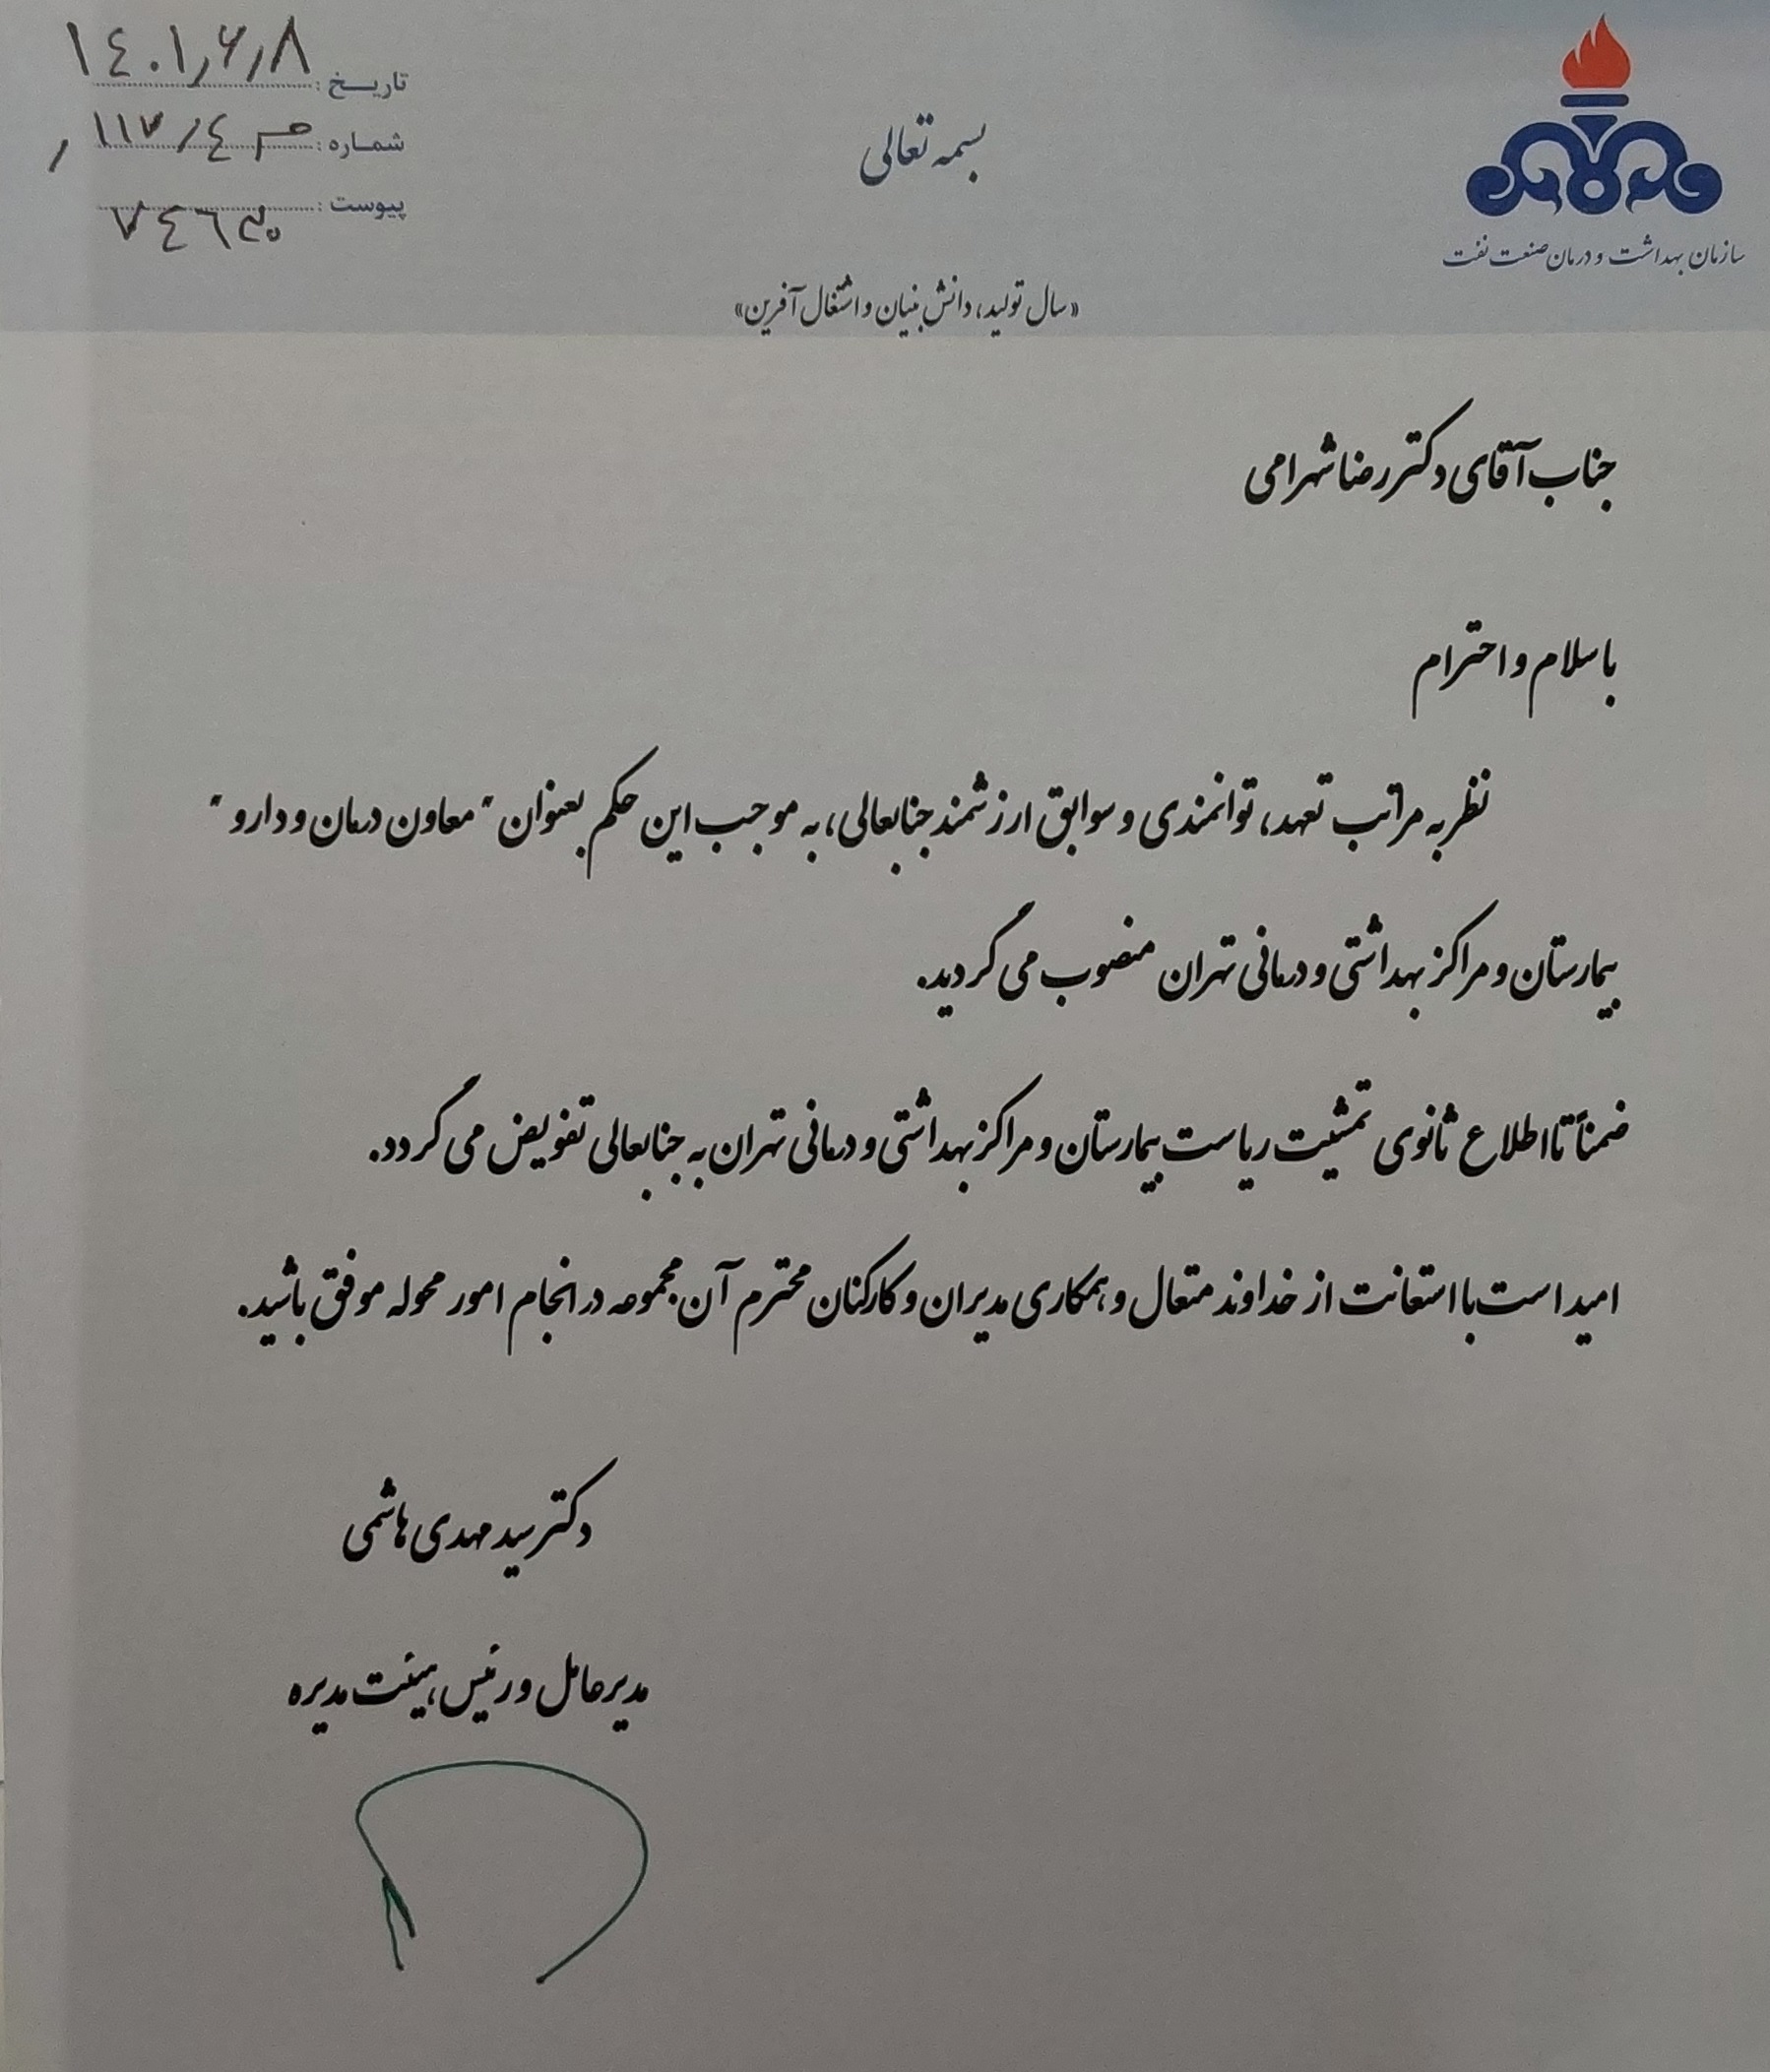 تاریخ: ۱۴۰۱٫۶٫۸
شماره: ۱۱۷/۴
پیوست: ۷۴۶
بسمه تعالی
سازمان بهداشت و درمان صنعت نفت
«سال تولید، دانش بنیان و اشتغال آفرین»
جناب آقای دکتر رضا شهرامی
با سلام و احترام
نظر به مراتب تعهد، توانمندی و سوابق ارزشمند جنابعالی، به موجب این حکم بعنوان "معاون درمان و دارو"
بیمارستان و مراکز بهداشتی و درمانی تهران منصوب می گردید.
ضمناً تا اطلاع ثانوی تمشیت ریاست بیمارستان و مراکز بهداشتی و درمانی تهران به جنابعالی تفویض می گردد.
امید است با استعانت از خداوند متعال و همکاری مدیران و کارکنان محترم آن مجموعه در انجام امور محوله موفق باشید.
دکتر سید مهدی هاشمی
مدیرعامل و رئیس هیئت مدیره